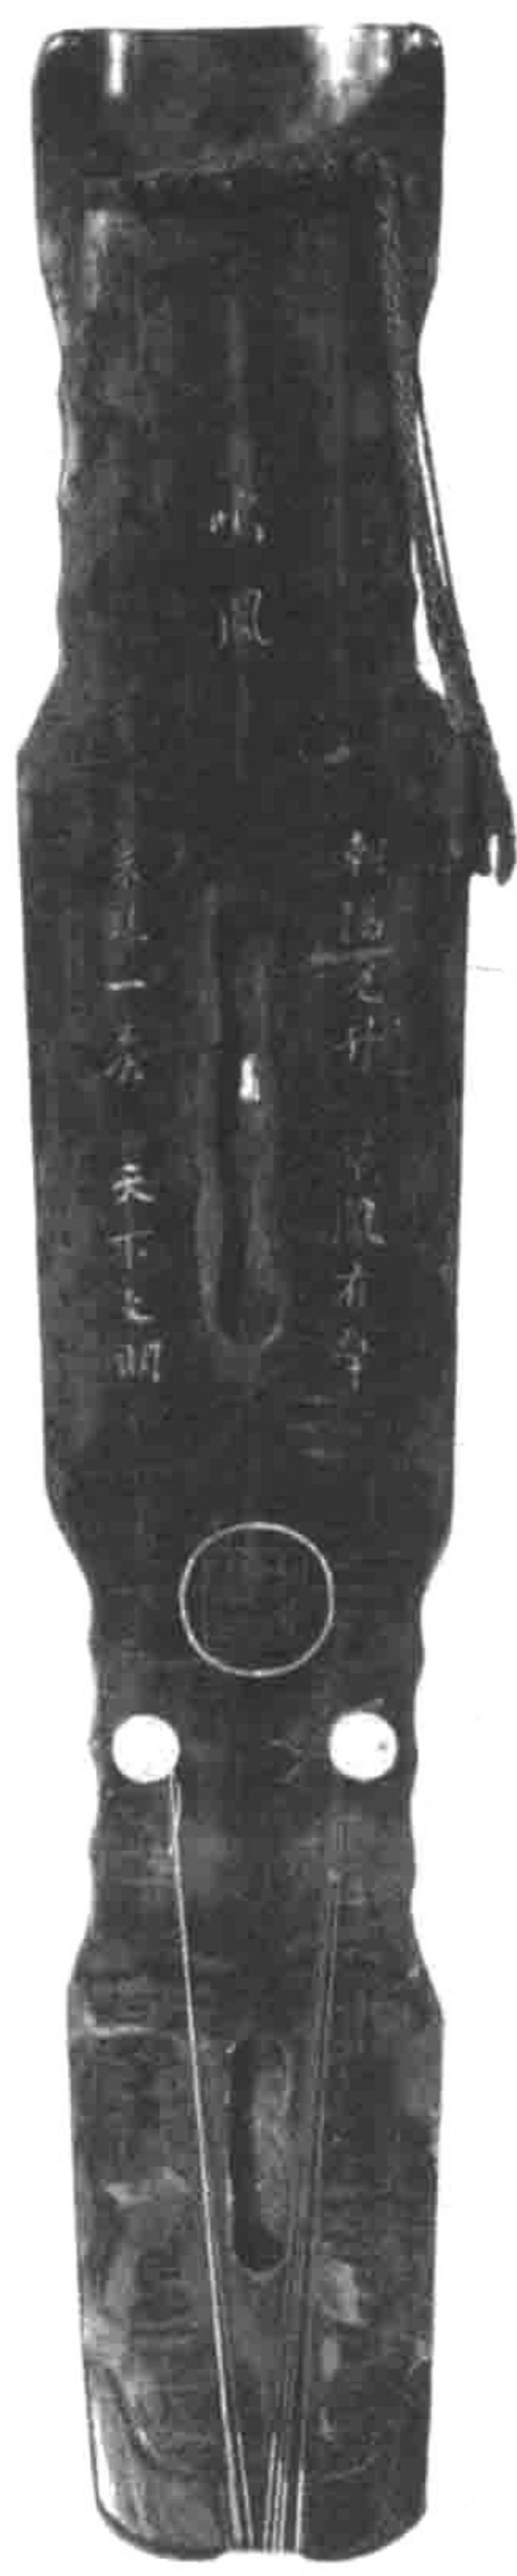 鳴鳳
朝陽既升 巢鳳有聲
朱絲一奏 天下文明